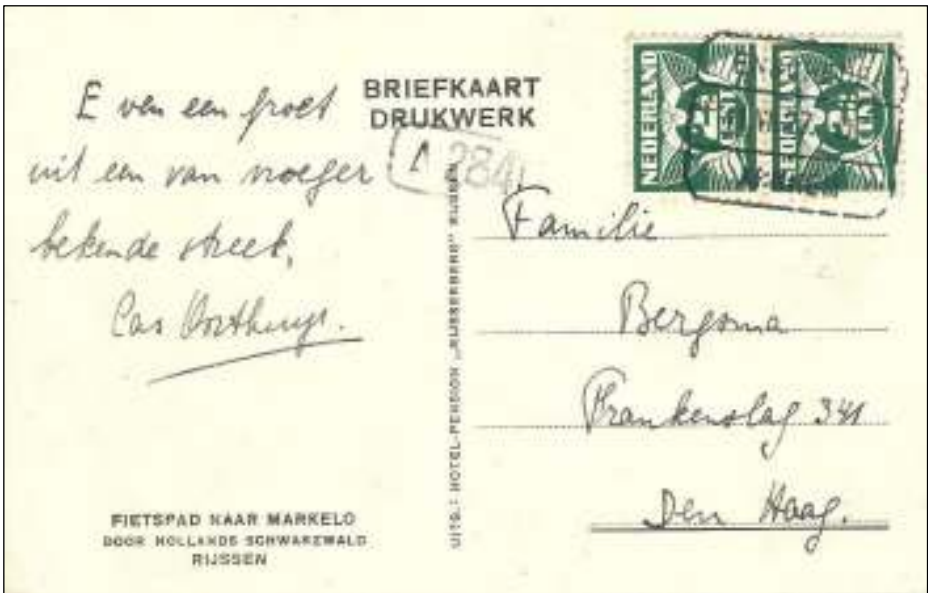 E ven een groet
uit een van vroeger
bekende streek,
Cas Oorthuys.
BRIEFKAART
DRUKWERK
A 284
NEDERLAND
CENT
NEDERLAND
CENT
Familie
Bergsma
Frankenslag 341
Den Haag.
UITG.: HOTEL-PENSION „RIJSSERBERG" RIJSSEN
FIETSPAD NAAR MARKELO
DOOR HOLLANDS SCHWARZWALD
RIJSSEN